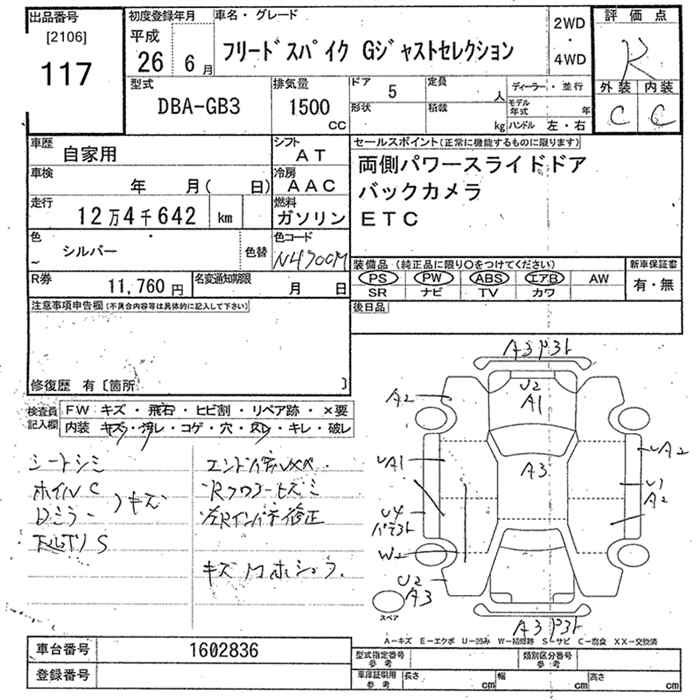 出品番号
[2106]
117
初度登録年月
平成
26 6月
車名・グレード
フリードスパイク Gジャストセレクション
2WD
・
4WD
評価点
R
外装 内装
C C
型式
DBA-GB3
排気量
1500
CC
ドア 5
定員 人
形状
積載 kg
ディーラー・並行
モデル年式 年
ハンドル 左・右
車歴
自家用
シフト
AT
車検
年 月( 日)
冷房
AAC
走行
12万4千642 km
燃料
ガソリン
色
シルバー
色替
色コード
NH700M
R券
11,760円
名変通知期限
月 日
セールスポイント(正常に機能するものに限ります)
両側パワースライドドア
バックカメラ
ETC
装備品(純正品に限り○をつけてください)
PS PW ABS エアB AW
SR ナビ TV カワ
新車保証書
有・無
後日品
注意事項申告欄(不具合内容等は具体的に記入して下さい)
修復歴 有〔箇所 〕
検査員記入欄
FW キズ・飛石・ヒビ割・リペア跡・×要
内装 キズ・汚レ・コゲ・穴・スレ・キレ・破レ
シートシミ
ホイルC
Dミラー キズ
下廻りS
キズ
A3
U2
A1
A2
A3
UA1
UA2
U1
A2
U4
W2
U2
A3
A3
スペア
A-キズ E-エクボ U-凹み W-補修跡 S-サビ C-腐食 XX-交換済
車台番号
1602836
登録番号
型式指定番号 参考
類別区分番号 参考
車庫証明用 参考
長さ cm
幅 cm
高さ cm